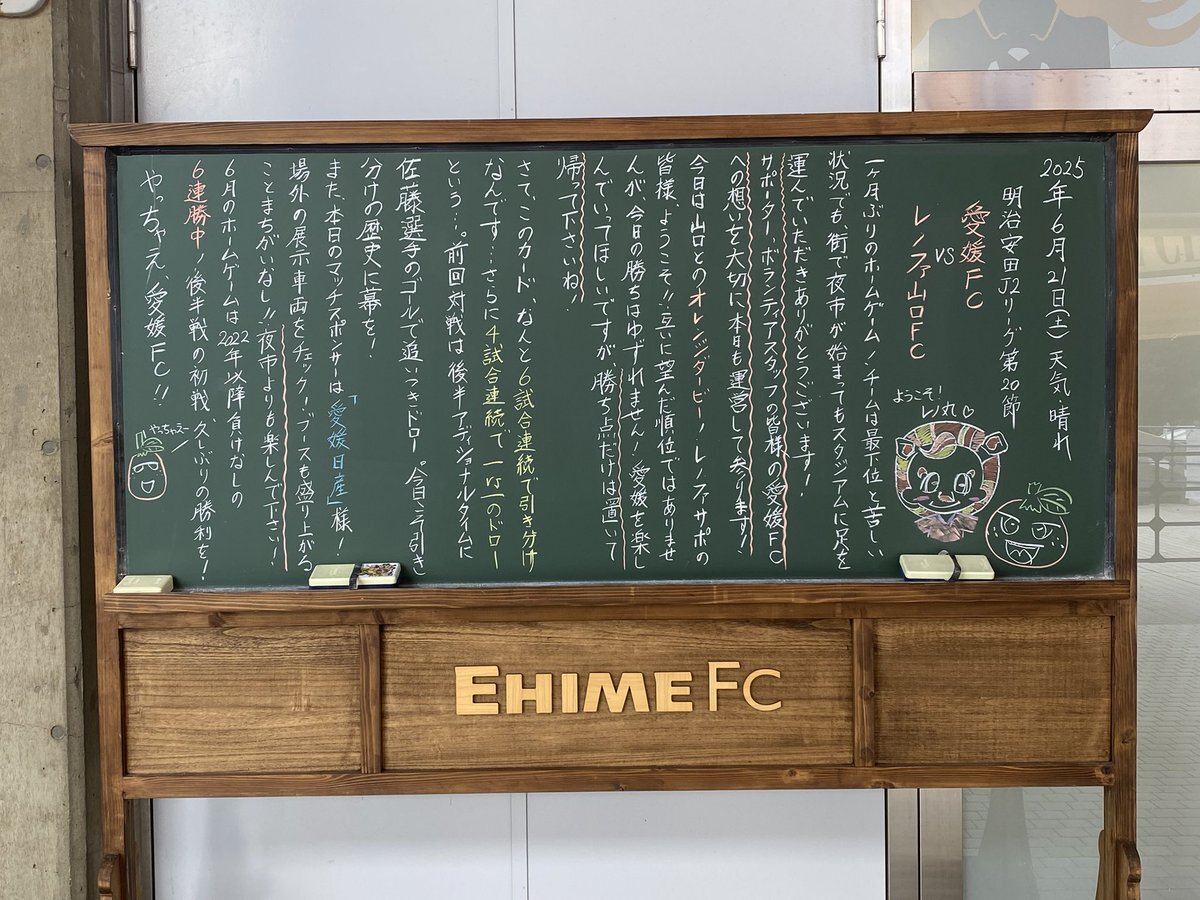 2025年6月21日(土) 天気:晴れ
明治安田J2リーグ第20節
愛媛FC
VS
レノファ山口FC
ようこそ!
レノ丸♡
一ヶ月ぶりのホームゲーム!チームは最下位と苦しい
状況でも、街で夜市が始まってもスタジアムに足を
運んでいただきありがとうございます!
サポーター、ボランティアスタッフの皆様の愛媛FC
への想いを大切に本日も運営して参ります!
今日は山口とのオレンジダービー!レノファサポの
皆様、ようこそ!!互いに望んだ順位ではありませ
んが、今日の勝ちはゆずれません!愛媛を楽し
んでいってほしいですが勝ち点だけは置いて
帰って下さいね!
さて、このカード、なんと6試合連続で引き分け
なんです…さらに4試合連続で、1-1のドロー
という…。前回対戦は後半アディショナルタイムに
佐藤選手のゴールで追いつきドロー。今日、引き
分けの歴史に幕を!
また、本日のマッチスポンサーは「愛媛日産」様!
場外の展示車両をチェック!ブースも盛り上がる
ことまちがいなし!!夜市よりも楽しんで下さい!
6月のホームゲームは2022年以降負けなしの
6連勝中!後半戦の初戦、久しぶりの勝利を!
やっちゃえ、愛媛FC!!
やっちゃえー
EHIME FC